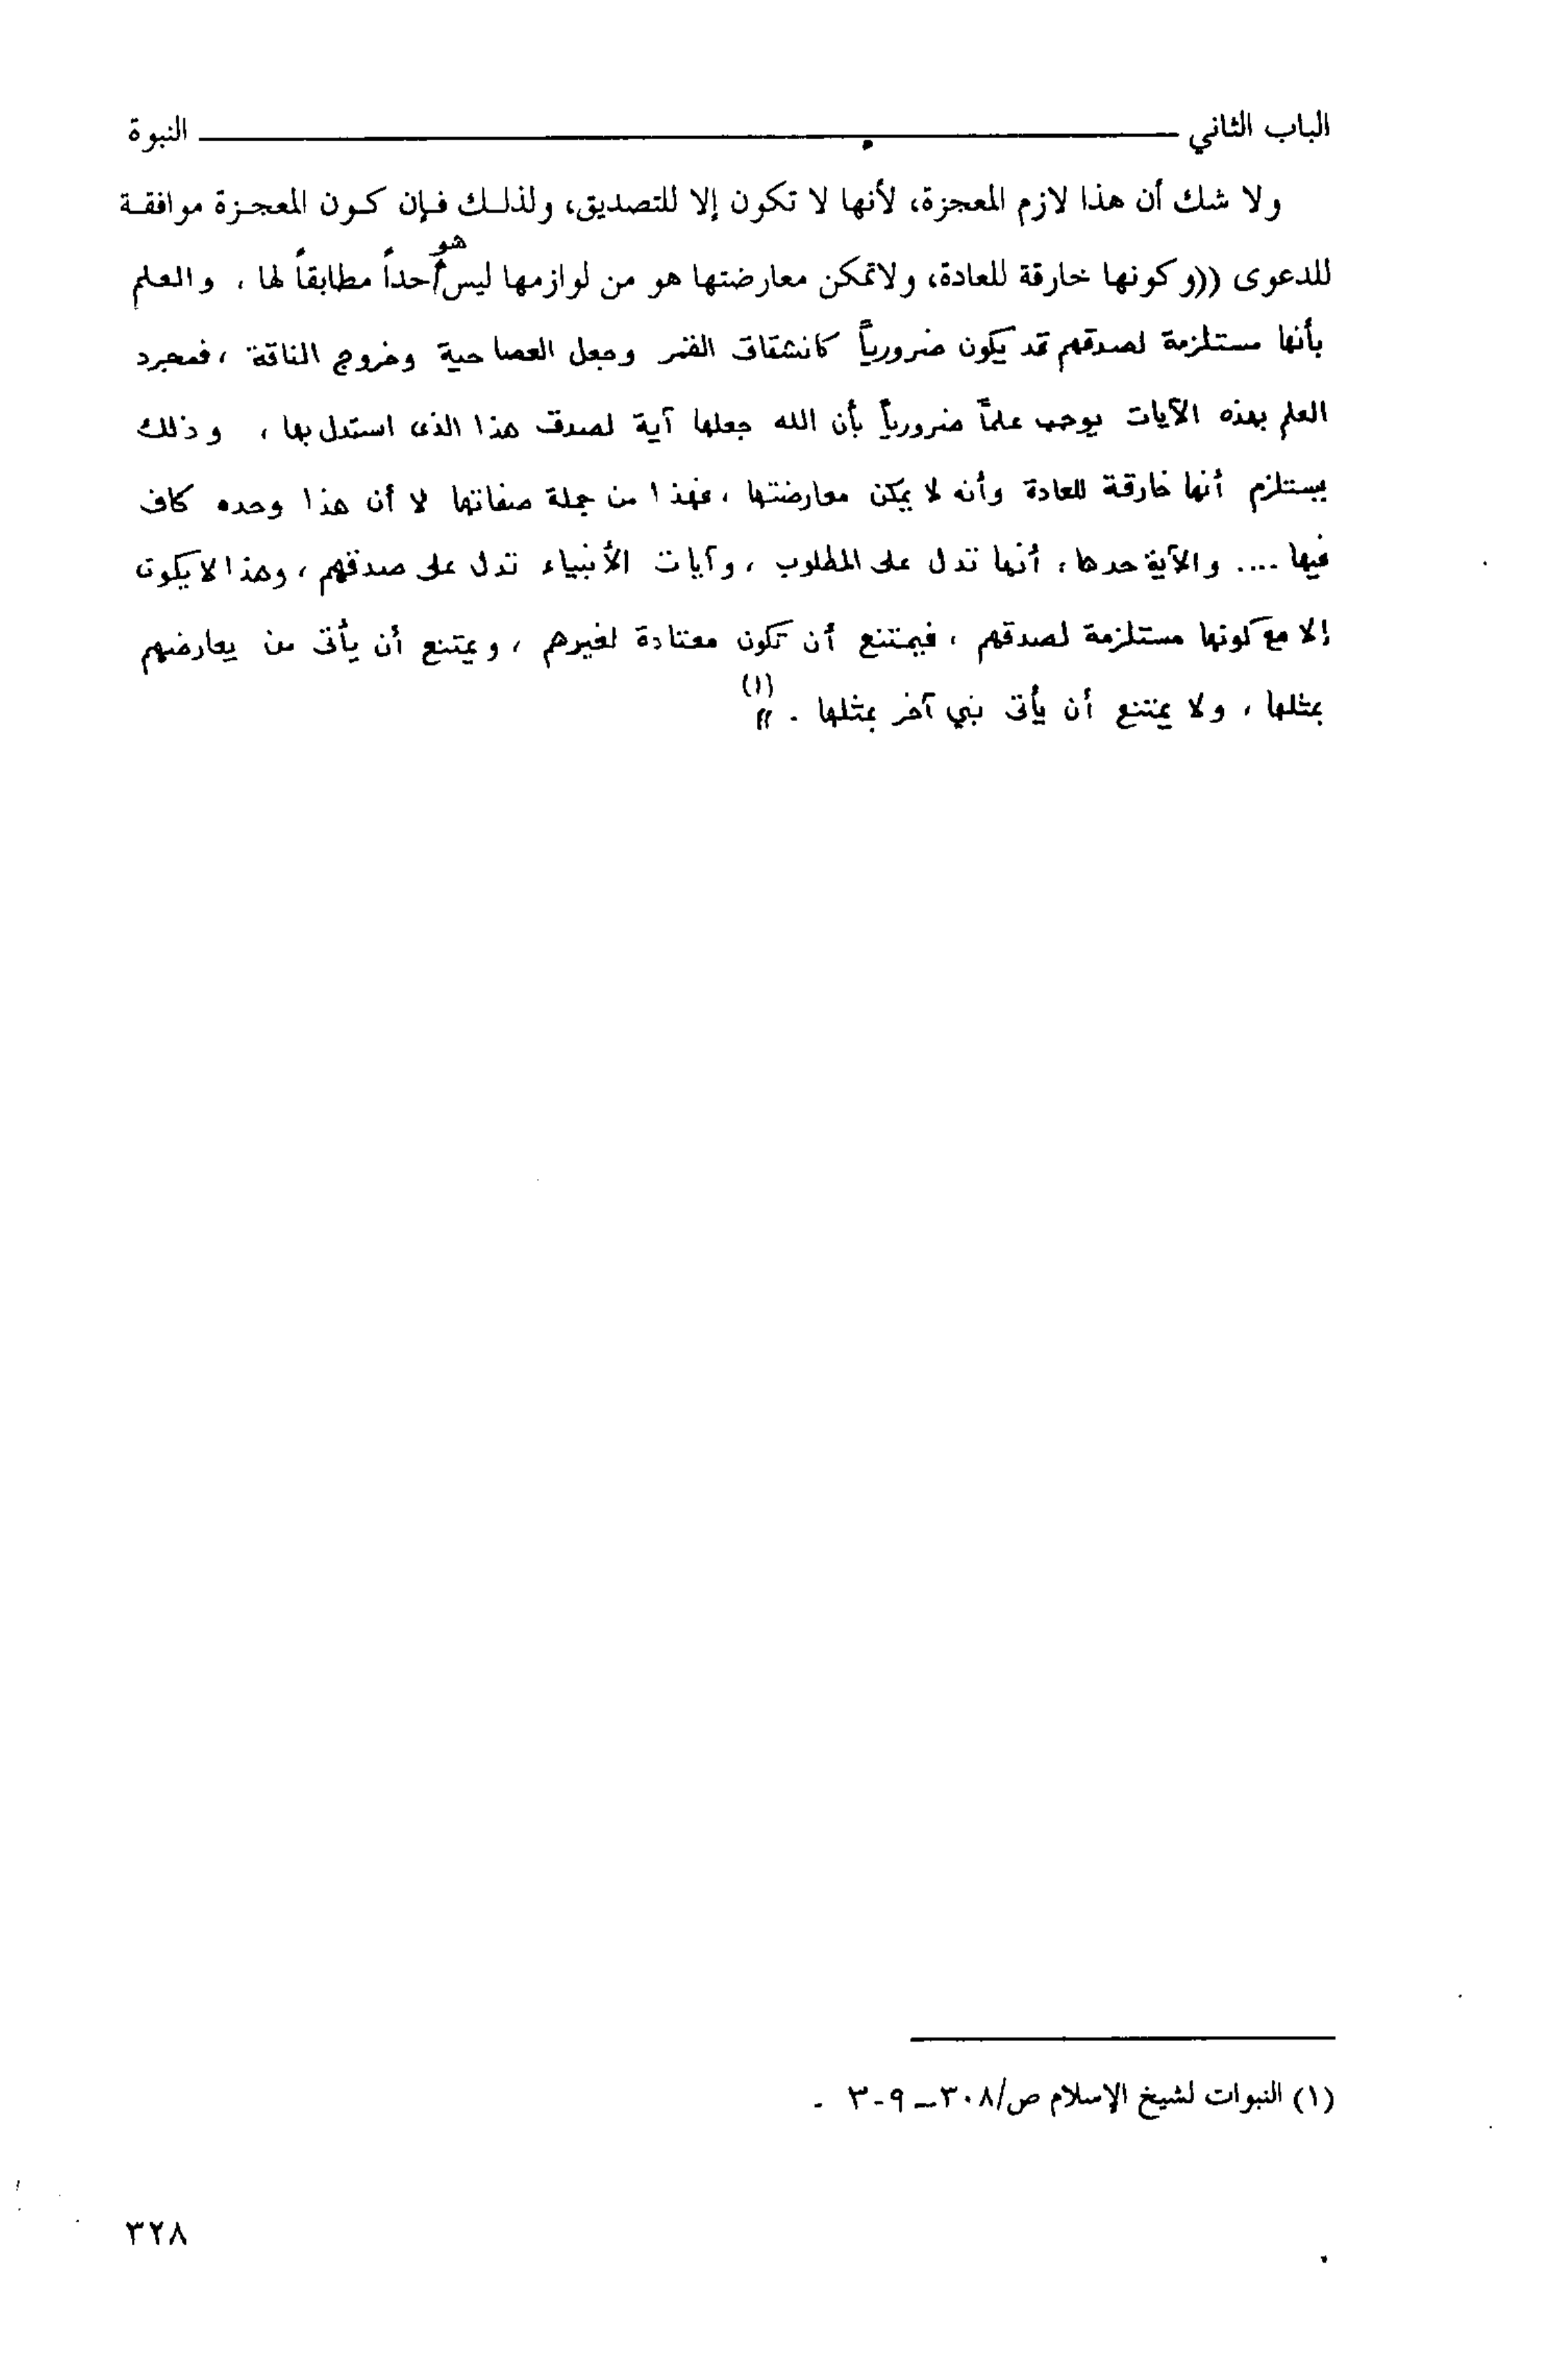 الباب الثاني ــــــــ النبوة
ولا شك أن هذا لازم المعجزة، لأنها لا تكون إلا للتصديق، ولذلك فإن كون المعجزة موافقة
للدعوى ((وكونها خارقة للعادة، ولاتمكن معارضتها هو من لوازمها ليس هو أحداً مطابقاً لها ، والعلم
بأنها مستلزمة لصدقهم قد يكون ضرورياً كانشقاق القمر وجعل العصا حية وخروج الناقة ، فمجرد
العلم بهذه الآيات يوجب علماً ضرورياً بأن الله جعلها آية لصدق هذا الذى استدل بها ، وذلك
يستلزم أنها خارقة للعادة وأنه لا يمكن معارضتها ، فهذا من جملة صفاتها لا أن هذا وحده كاف
فيها .... والآية حدها ، أنها تدل على المطلوب ، وآيات الأنبياء تدل على صدقهم ، وهذا لا يكون
إلا مع كونها مستلزمة لصدقهم ، فيمتنع أن تكون معتادة لغيرهم ، ويمتنع أن يأتى من يعارضهم
بمثلها ، ولا يمتنع أن يأتى نبي آخر بمثلها . )) (١)
(١) النبوات لشيخ الإسلام ص/٣٠٨ــ٩-٣ .
٣٢٨